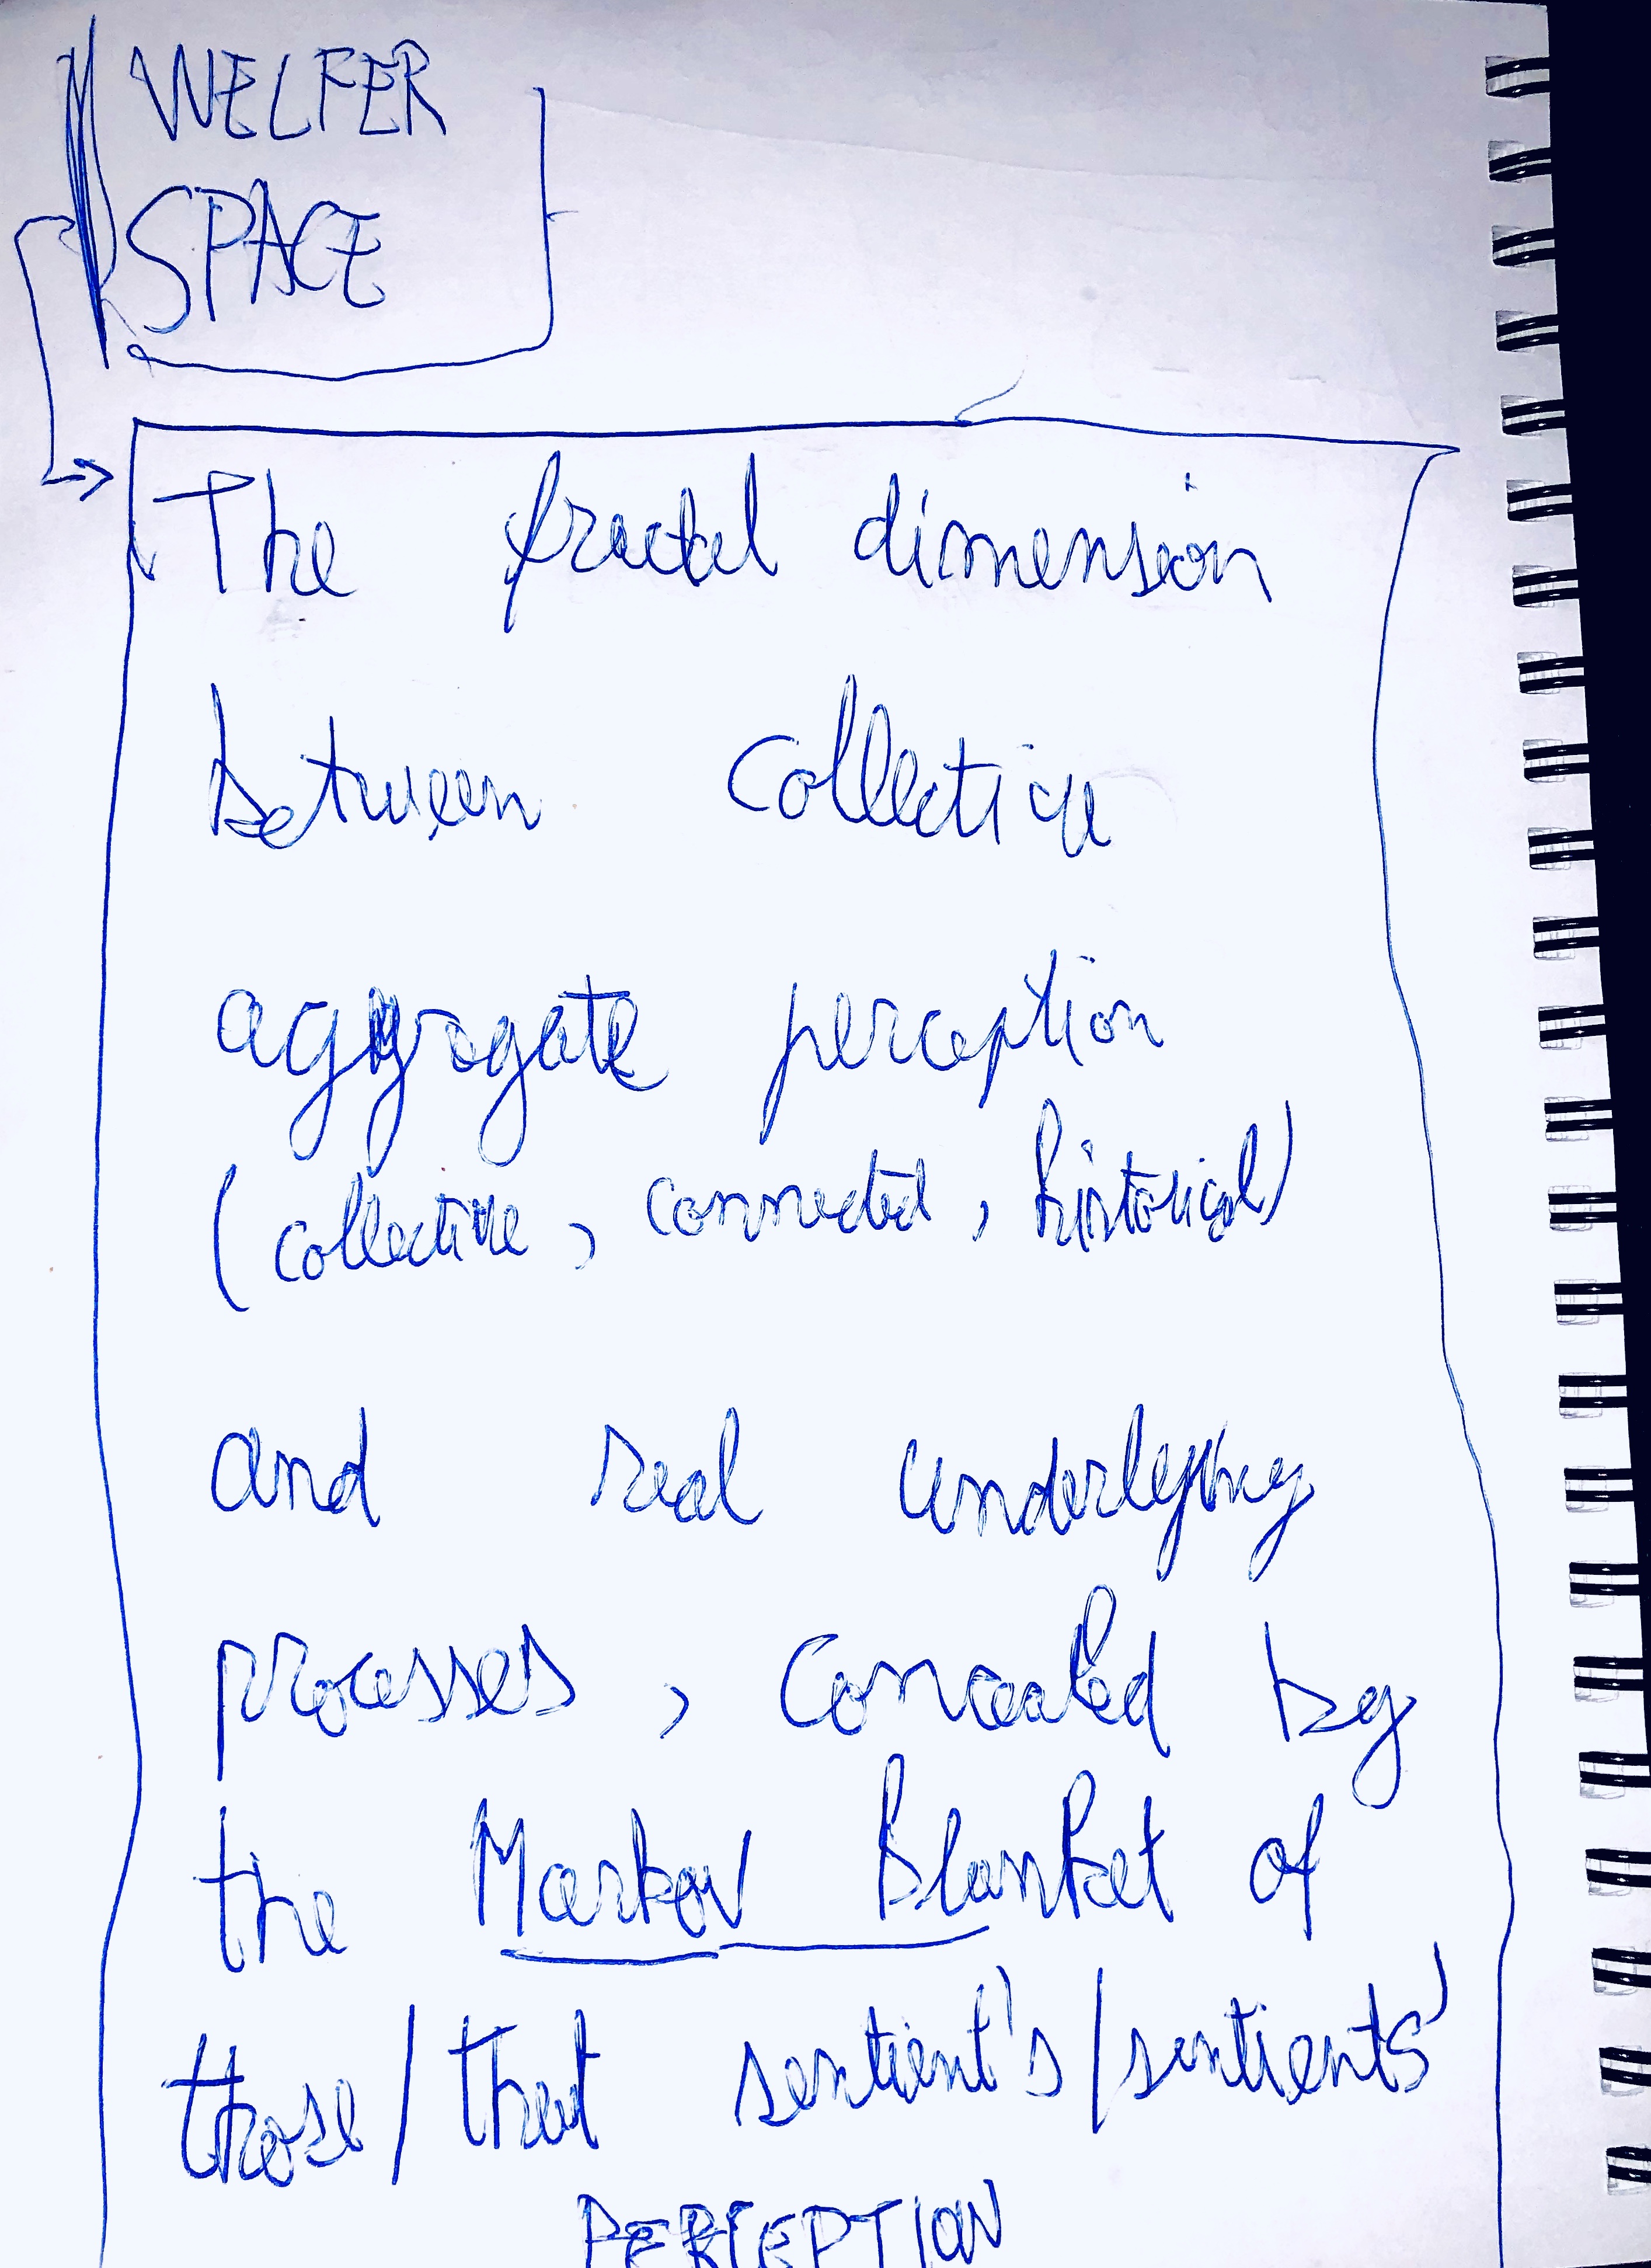 WELFER
SPACE
The fractal dimension
between collective
aggregate perception
(collective, connected, historical)
and real underlying
processes, concealed by
the Markov Blanket of
those/that sentient's/sentients'
PERCEPTION